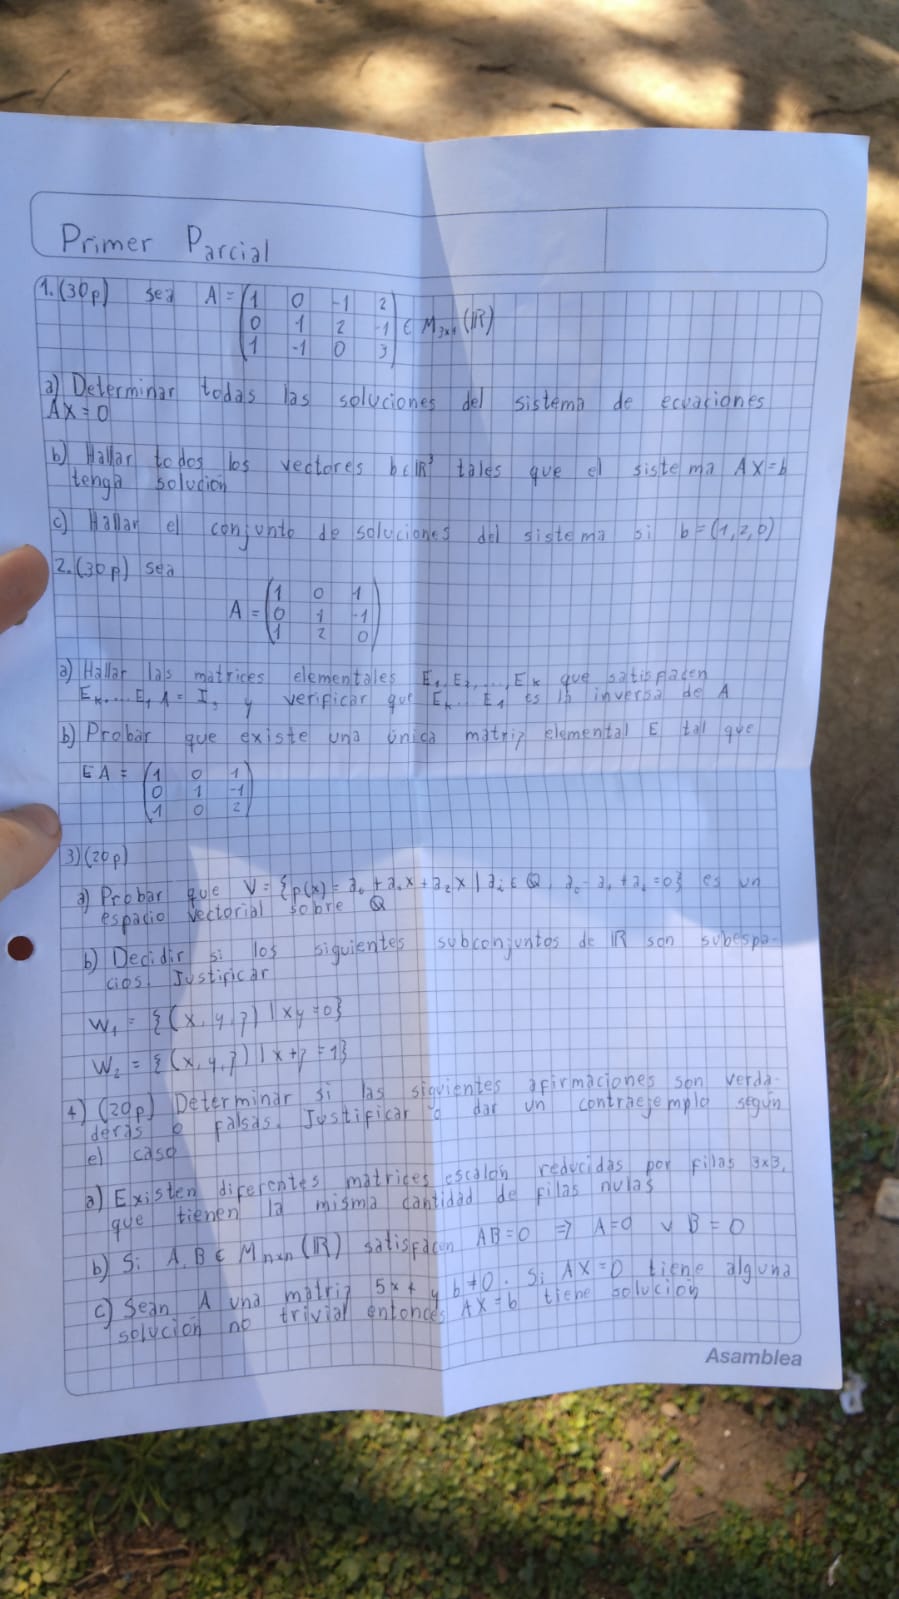 Primer Parcial
1.(30p) sea A = (1 0 -1 2
0 1 2 -1
1 -1 0 3) ∈ M₃ₓ₄(ℝ)
a) Determinar todas las soluciones del sistema de ecuaciones
AX = 0
b) Hallar todos los vectores b∈ℝ³ tales que el sistema AX=b
tenga solución
c) Hallar el conjunto de soluciones del sistema si b=(1,2,0)
2.(30p) sea
A = (1 0 1
0 1 -1
1 2 0)
a) Hallar las matrices elementales E₁, E₂, ..., Eₖ que satisfacen
Eₖ....E₁ A = I₃ y verificar que Eₖ... E₁ es la inversa de A
b) Probar que existe una única matriz elemental E tal que
EA = (1 0 1
0 1 -1
1 0 2)
3)(20p)
a) Probar que V = {p(x) = a₀ + a₁x + a₂x | aᵢ ∈ ℚ, a₀ - a₁ + a₂ = 0} es un
espacio vectorial sobre ℚ
b) Decidir si los siguientes subconjuntos de ℝ son subespa-
cios. Justificar
W₁ = {(x, y, z) | xy = 0}
W₂ = {(x, y, z) | x+z = 1}
4) (20p) Determinar si las siguientes afirmaciones son verda-
deras o falsas. Justificar o dar un contraejemplo según
el caso
a) Existen diferentes matrices escalón reducidas por filas 3x3,
que tienen la misma cantidad de filas nulas
b) Si A, B ∈ Mₙₓₙ(ℝ) satisfacen AB=0 ⇒ A=0 ∨ B=0
c) Sean A una matriz 5x4 y b≠0. Si AX=0 tiene alguna
solución no trivial entonces AX=b tiene solución
Asamblea